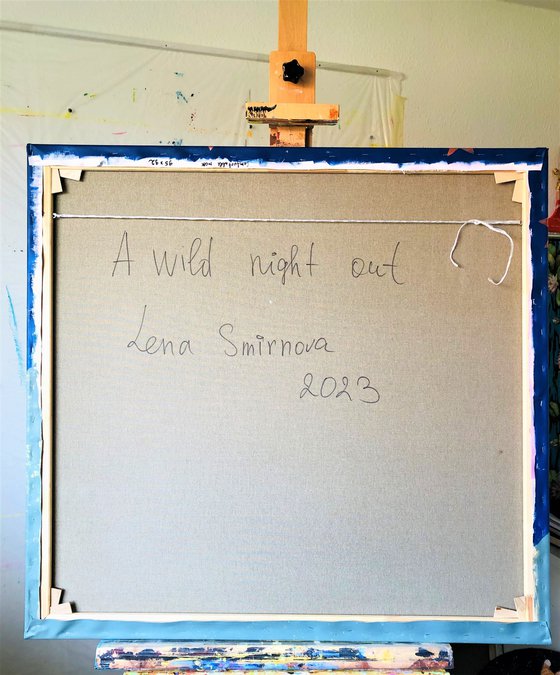 A wild night out
Lena Smirnova
2023